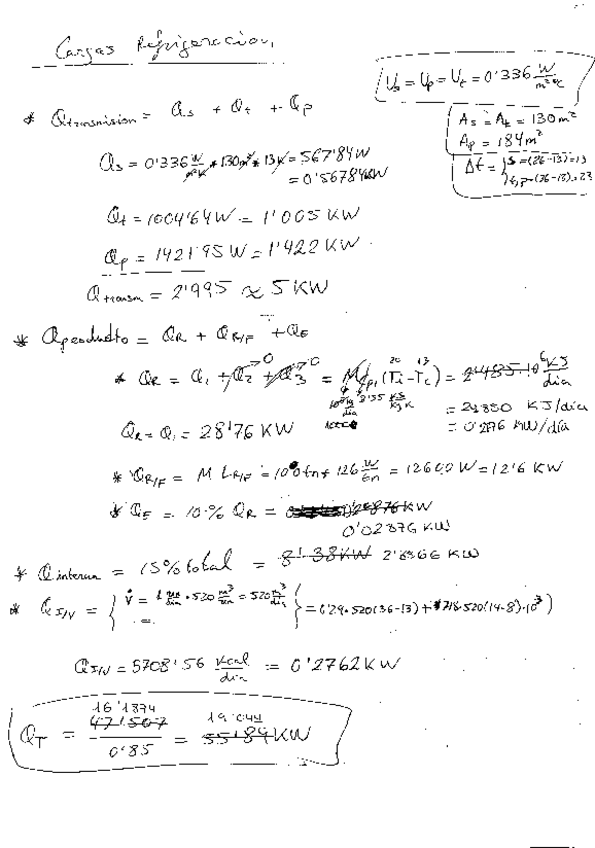 Cargas Refrigeracion,
Us = Up = Ut = 0'336 W/m²ºC
As = At = 130 m²
Ap = 184 m²
Δt = { s = (26-13) = 13
t,p = (36-13) = 23
* Qtransmision = Qs + Qt + Qp
Qs = 0'336 W/m²K * 130m² * 13K = 567'84W
= 0'56784KW
Qt = 1004'64W = 1'005 KW
Qp = 1421'95W = 1'422 KW
Qtransm = 2'995 ≈ 5 KW
* Qproducto = QR + QR/F + QE
* QR = Q1 + Q2→0 + Q3→0 = M Cp1 (Ti-Tc) =
20 13
= 0'276 KW/dia
QR = Q1 = 28'76 KW
* QR/F = M LR/F = 100tn * 126 W/tn = 12600W = 12'6 KW
* QE = 10% QR =
0'02876 KW
* Qinterna = 15% total = 8'38KW 2'8566 KW
* QI/V = { V̇ = 1 · 520 = 520 m³/dia } = 0'29·520(36-13) + 718·520(14-8)·10⁻³)
QI/V = 5708'56 Kcal/dia = 0'2762KW
16'1874
QT = 47'1507 / 0'85 = 55'84 KW